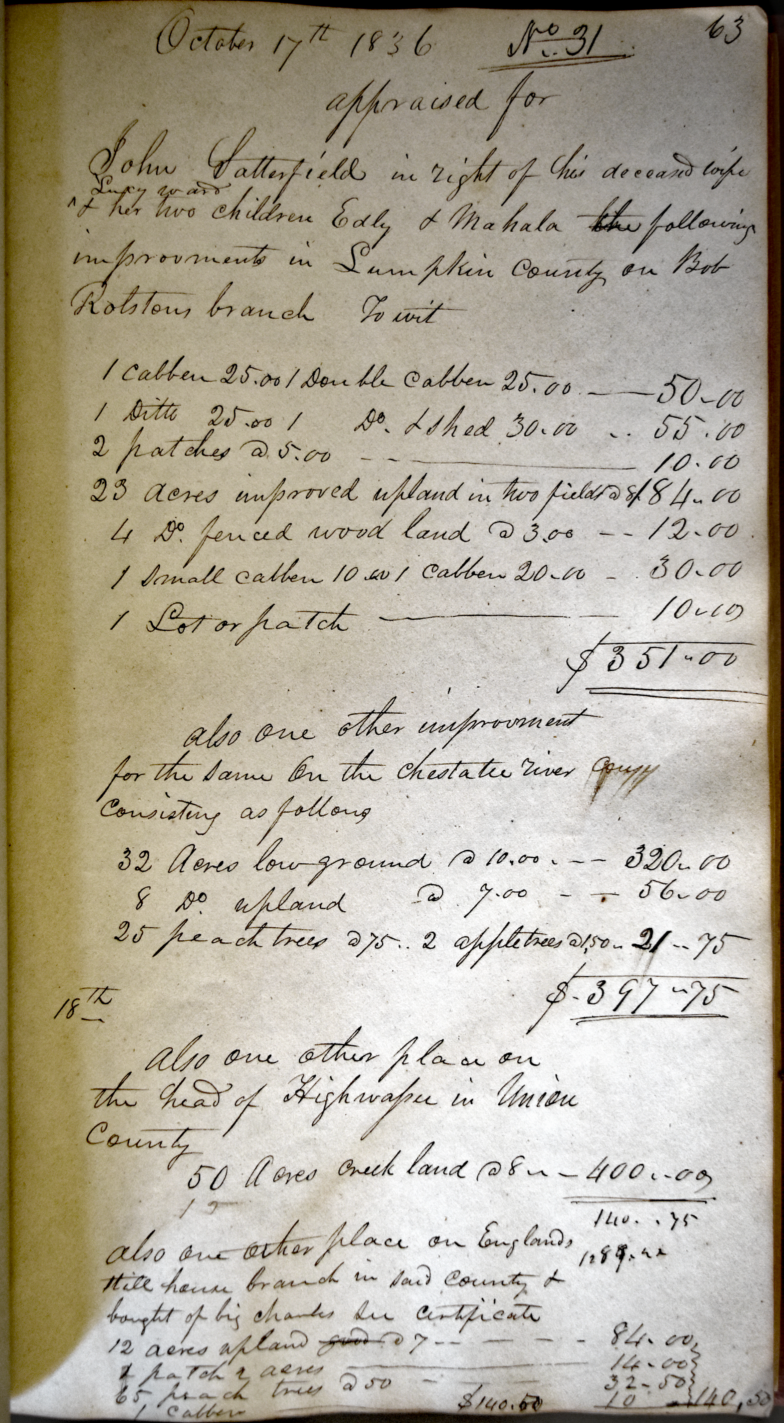 October 17th 1836 No. 31 63
appraised for
John Satterfield in right of his deceased wife
Lucy ward
^ & her two children Edly & Mahala the following
improvments in Lumpkin County on Bob
Rolstons branch To wit
1 cabben 25.00 1 Double cabben 25.00 — 50.00
1 Ditto 25.00 1 Do. & shed 30.00 .. 55.00
2 patches @ 5.00 -- — 10.00
23 acres improved upland in two fields @ 8/ 184.00
4 Do. fenced wood land @ 3.00 -- 12.00
1 small cabben 10.00 1 cabben 20.00 - 30.00
1 Lot or patch — 10.00
$351.00
also one other improvment
for the same On the chestatee river
consisting as follows
32 Acres low ground @ 10.00 . -- 320.00
8 Do. upland @ 7.00 - - 56.00
25 peach trees @ 75 .. 2 apple trees @ 1.50 .. 21..75
18th $.397.75
also one other place on
the head of Highwassee in Union
County
50 Acres creek land @ 8 .. - 400..00
140..75
also one other place on Englands
1289
Still house branch in said county &
bought of big charles see certificate
12 acres upland good @ 7 -- - - - 84.00
1 patch 2 acres — 14.00
65 peach trees @ 50 - 32.50
1 cabben $140.50 10 140,50